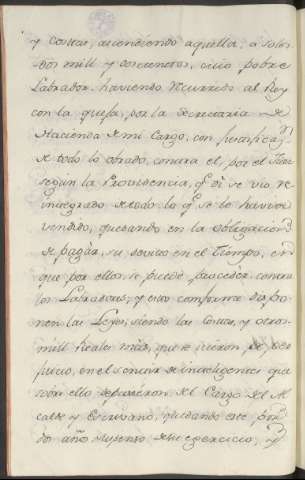 y costas, ascendiendo aquella, a solos
dos mill y doscientos, cuio pobre
Labrador haviendo recurrido al Rey
con la quexa, por la Secretaria de
Hacienda de mi Cargo, con justificaz.n
de todo lo obrado, contra el, por el Juez
según la Providencia, q.e di se vio re
integrado de todo lo q.e se le havia
vendido, quedando en la obligacion
de pagar, su devito en el Tiempo, en
que por ellos se puede proceder contra
los Labradores, y esto conforme dispo
nen las Leyes, siendo las Costas, y otros
mill reales mas, que se
juicio, en el de inteligencia que
sobre ello del Cargo de Al
calde y Escrivano, quedando este
do año suspenso de su egercicio, y